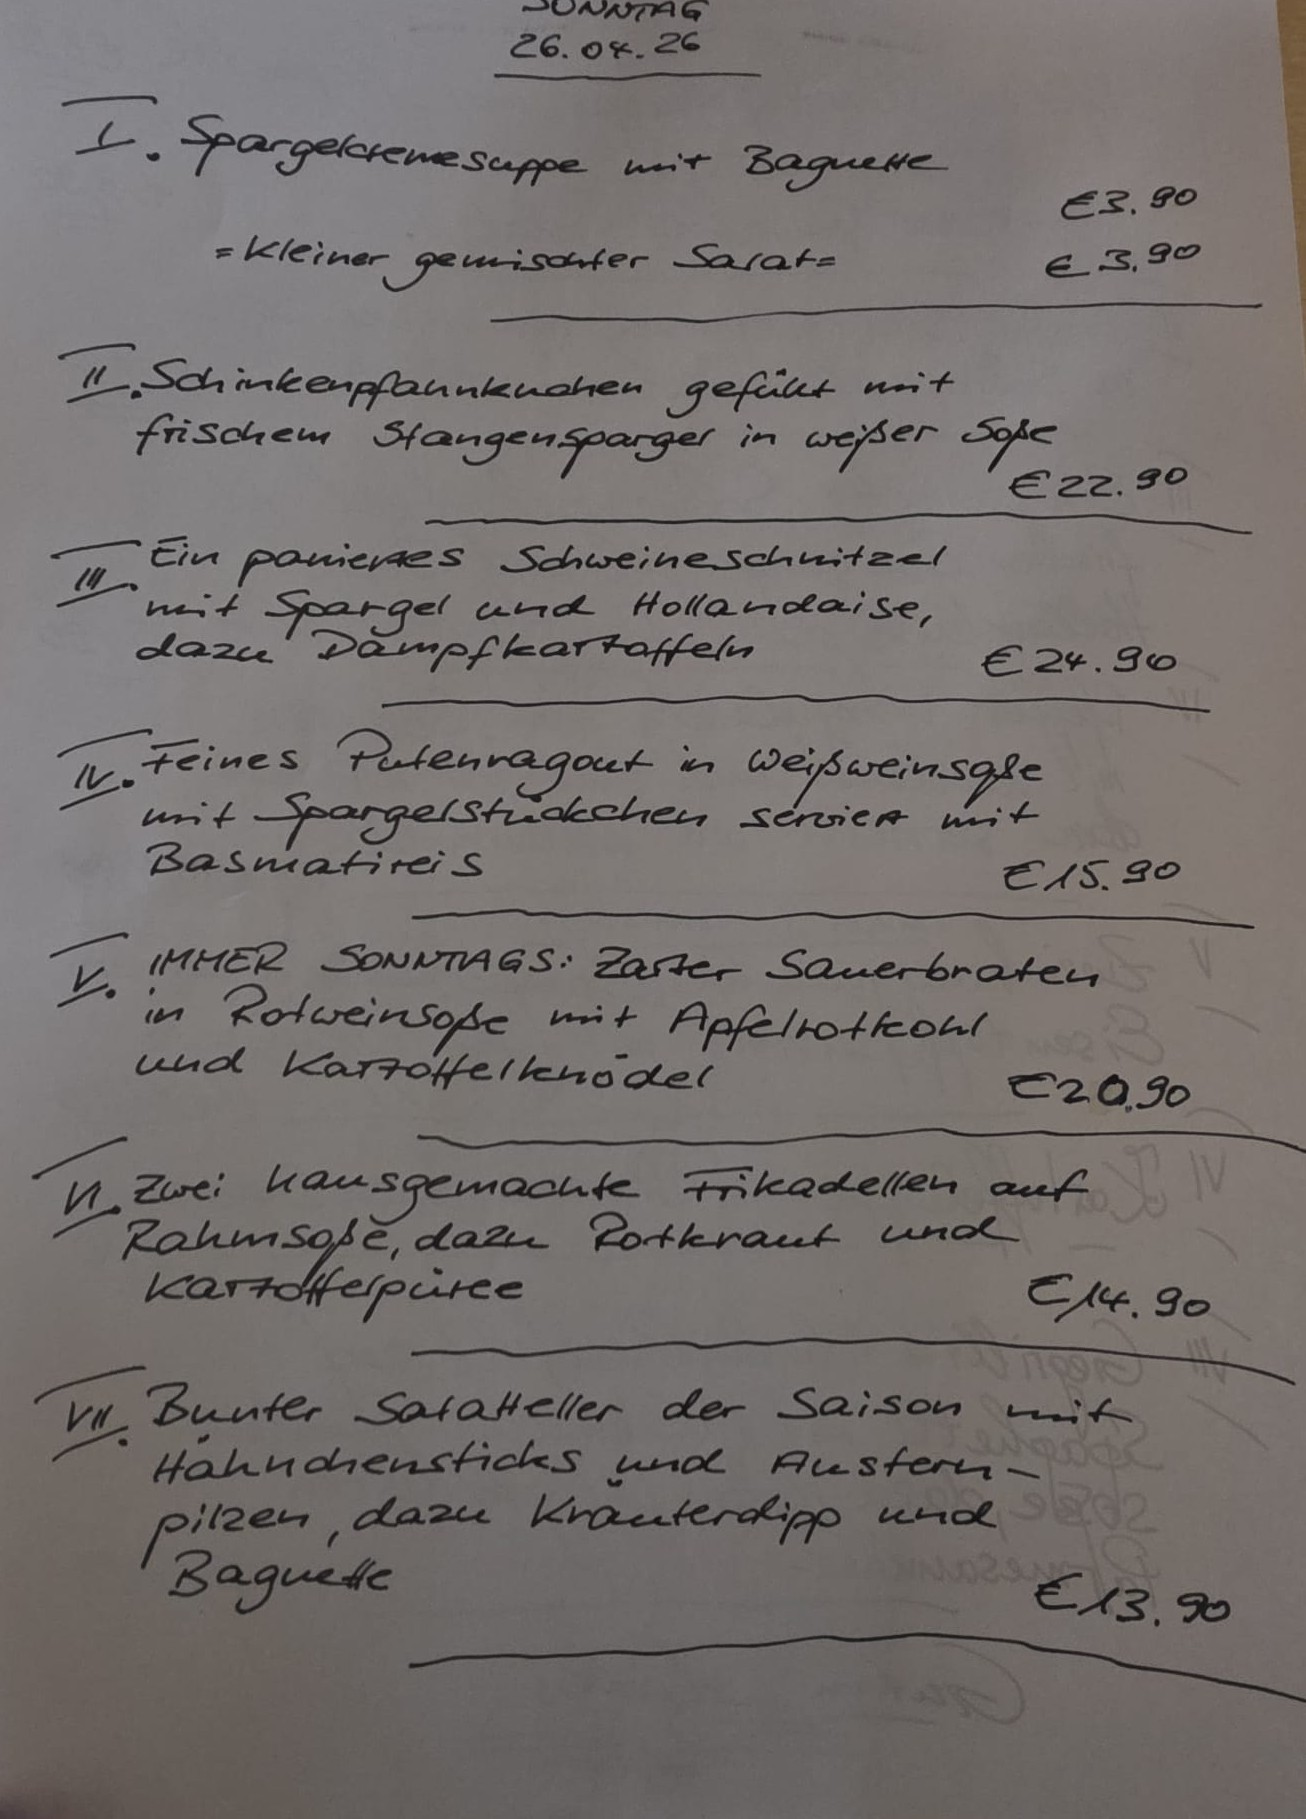 SONNTAG
26.04.26
I. Spargelcremesuppe mit Baguette
€3.90
=Kleiner gemischter Salat=
€3.90
II. Schinkenpfannkuchen gefüllt mit
frischem Stangenspargel in weißer Soße
€22.90
III. Ein paniertes Schweineschnitzel
mit Spargel und Hollandaise,
dazu Dampfkartoffeln
€24.90
IV. Feines Putenragout in Weißweinsoße
mit Spargelstückchen serviert mit
Basmatireis
€15.90
V. IMMER SONNTAGS: Zarter Sauerbraten
in Rotweinsoße mit Apfelrotkohl
und Kartoffelknödel
€20.90
VI. Zwei hausgemachte Frikadellen auf
Rahmsoße, dazu Rotkraut und
Kartoffelpüree
€14.90
VII. Bunter Salatteller der Saison mit
Hähnchensticks und Austern-
pilzen, dazu Kräuterdipp und
Baguette
€13.90